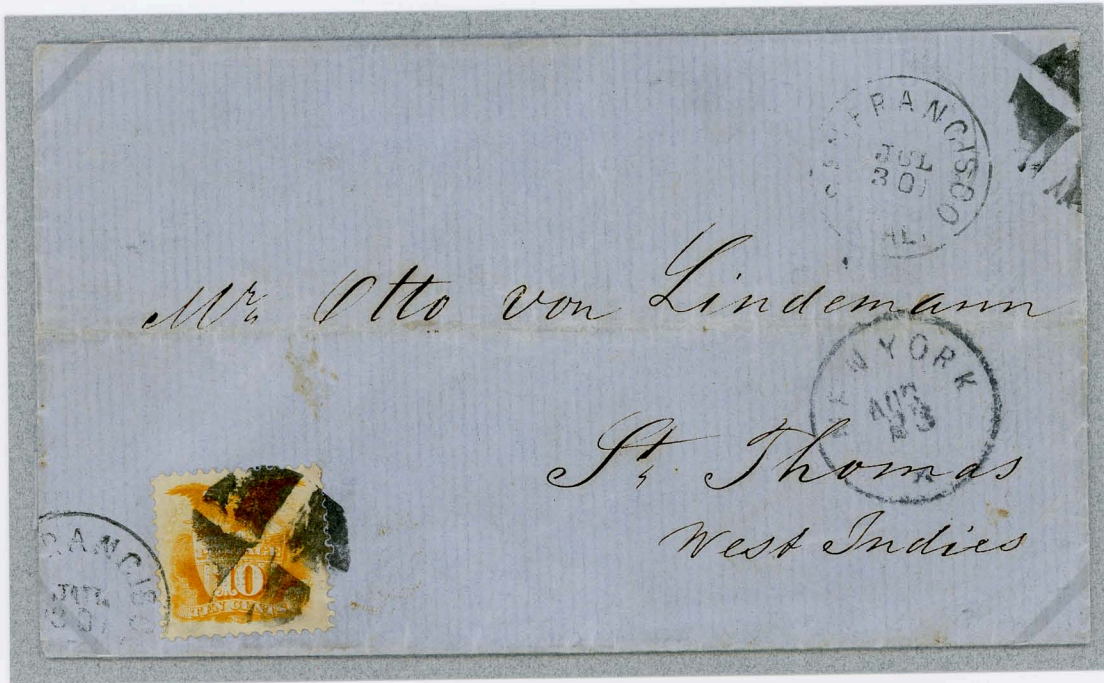 SAN FRANCISCO
JUL
30
CAL.
Mr. Otto von Lindemann
NEW YORK
AUG
23
St. Thomas
West Indies
RANCISC
JUL
30
POSTAGE
10
TEN CENTS